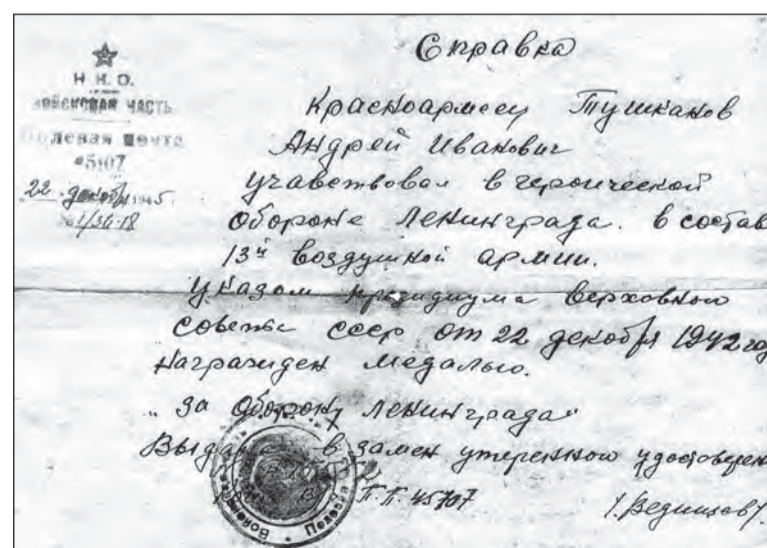 Справка
Н. К. О.
ВОЙСКОВАЯ ЧАСТЬ
Полевая почта
22 декабря 1945
№ 1/36-18
Красноармеец Тушканов
Андрей Иванович
участвовал в героической
обороне Ленинграда. в состав
13й воздушной армии.
Указом президиума верховного
совета ссср от 22 декабря 1942 год
Награжден медалью.
"За оборону Ленинграда"
Выдана в замен утерянного удостоверен
П.П. 45707